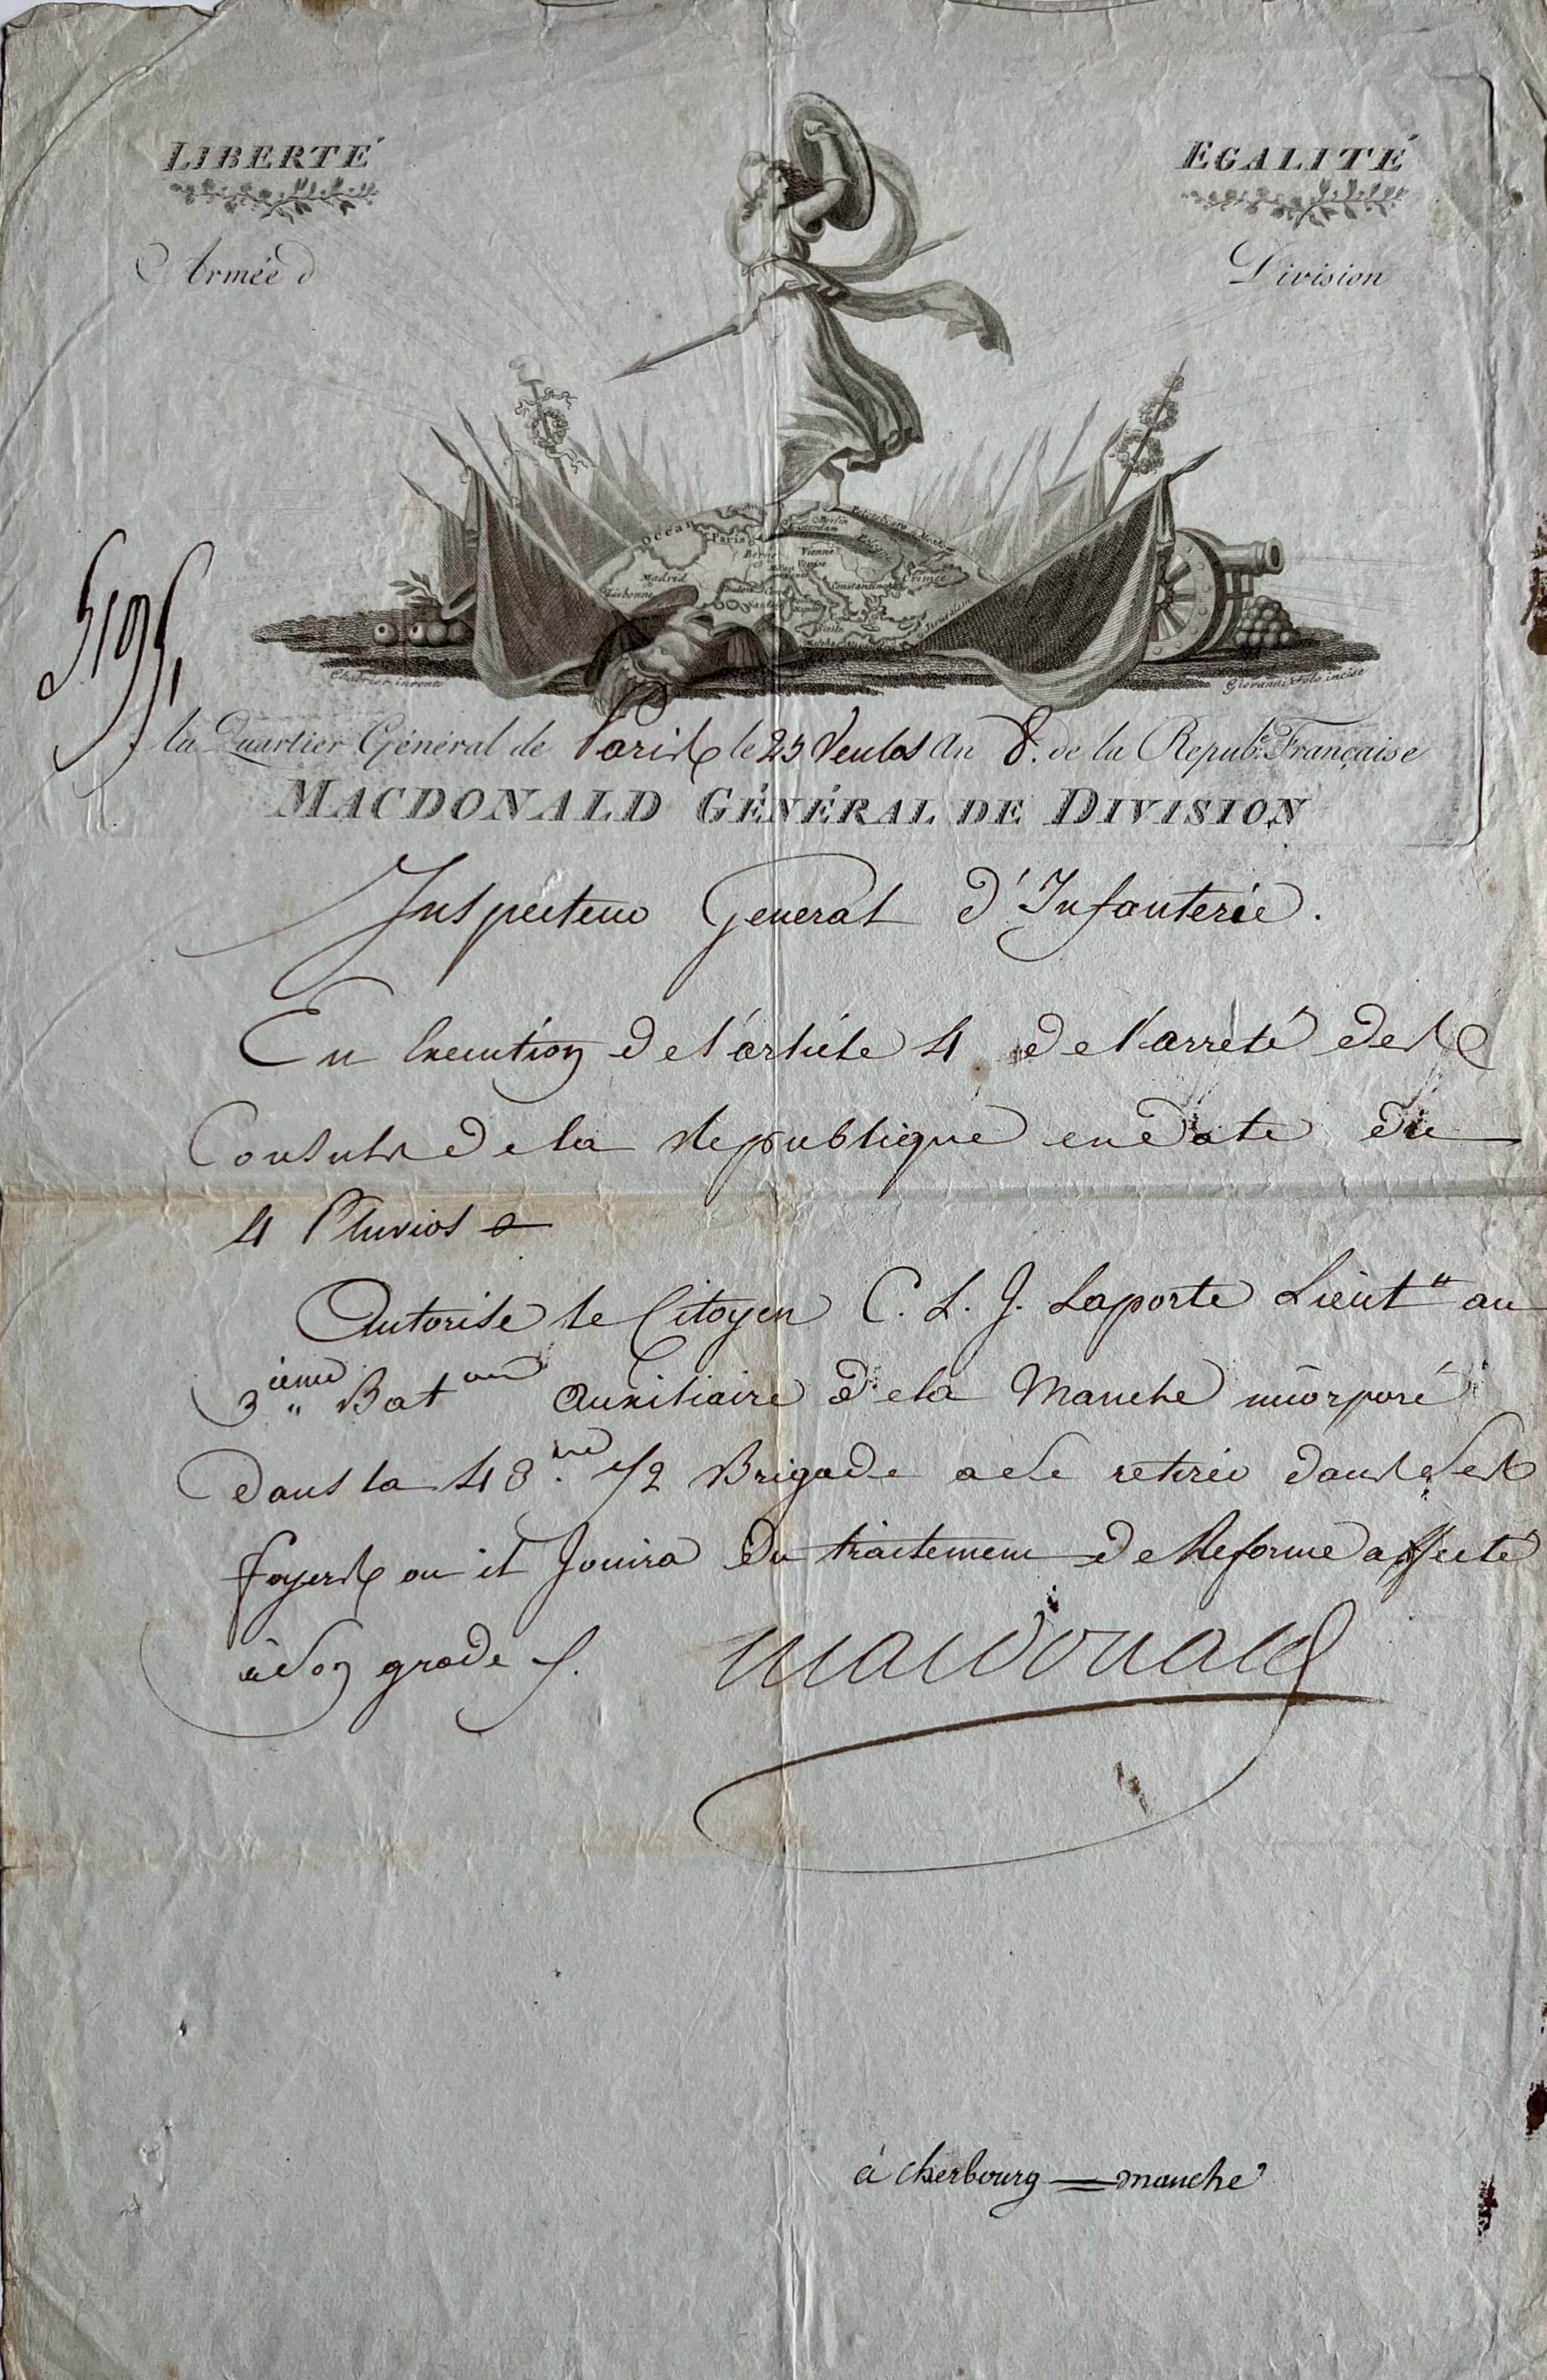 LIBERTÉ
EGALITÉ
Armée d
Division
Océan
Paris
Berlin
Amsterdam
Vienne
Madrid
Lisbonne
Constantinople
Crimée
Jerusalem
Chabrier invento
Giovanni Folo incise
5195
Au Quartier Général de Paris le 25 Ventos An 8. de la Repub.e Française
MACDONALD GÉNÉRAL DE DIVISION
Inspecteur General d'Infanterie.
En Execution de l'article 4 de l'arrêté des
Consuls de la Republique en date du
4 Pluviose
Autorise le Citoyen C. L. J. Laporte Lieut.t au
3ieme Baton auxiliaire de la Manche incorporé
dans la 43.me 1/2 Brigade a se retirer dans ses
foyers ou il Jouira du traitement de Reforme affecté
à son grade /.
Macdonald
à cherbourg = manche